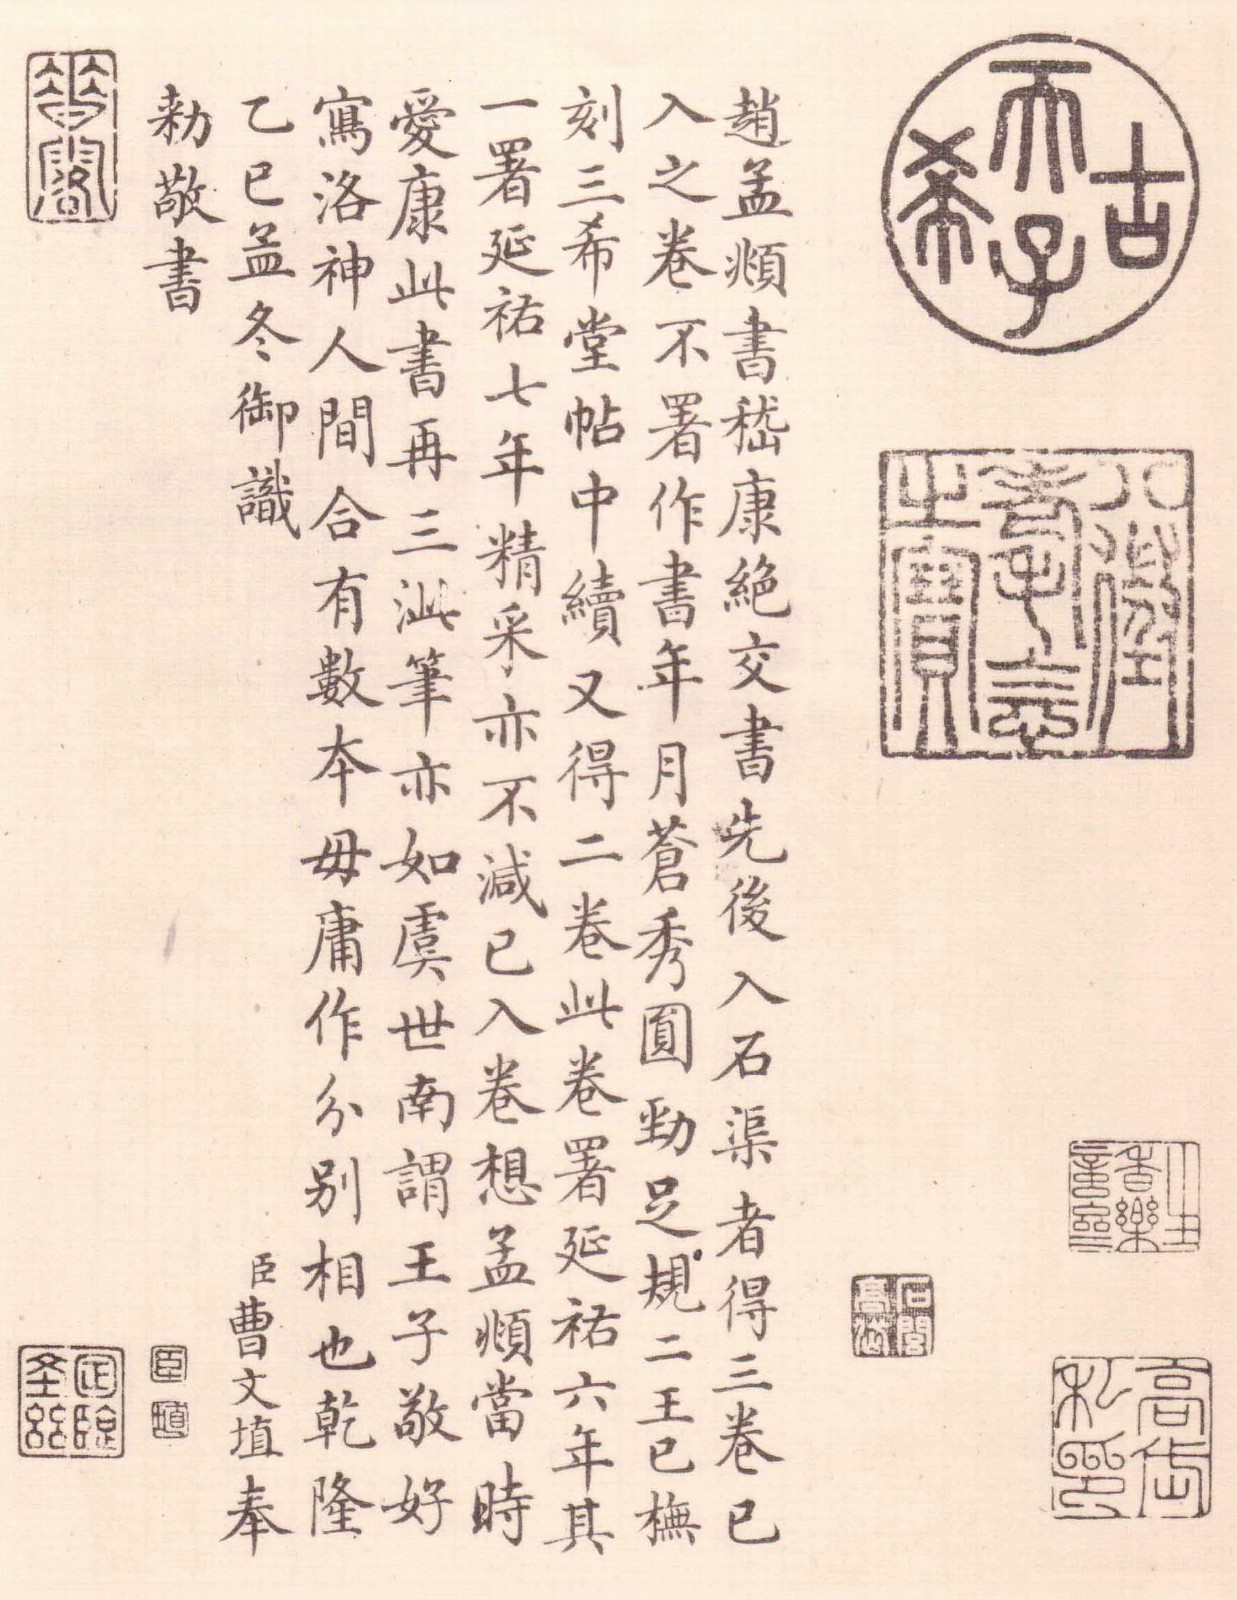 古希天子
八徵耄念之寶
趙孟頫書嵇康絕交書先後入石渠者得三卷已
入之卷不署作書年月蒼秀圓勁足規二王已橅
刻三希堂帖中續又得二卷此卷署延祐六年其
一署延祐七年精采亦不減已入卷想孟頫當時
愛康此書再三泚筆亦如虞世南謂王子敬好
寫洛神人間合有數本毋庸作分别相也乾隆
乙巳孟冬御識
臣曹文埴奉
勅敬書
臣
埴